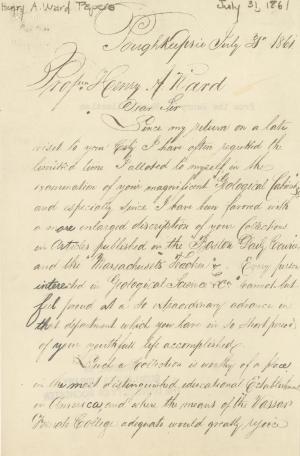 Henry A. Ward Papers
July 31, 1861
Poughkeepsie July 31st 1861
Profr Henry A. Ward
Dear Sir
Since my return on a late
visit to your City I have often regretted the
limited time I allotted to myself in the
examination of your magnificent Geological Cabinet
and especially since I have been favored with
a more enlarged discription of your Collections
in Articles published in the Boston Daily Courier
and the Massachusetts Teacher &c. Every person
interested in Geological Science &c cannot but
feel proud at a so extraordinary advance in
that department which you have in so short period
of your youthful life accomplished.
Such a Collection is worthy of a place
in the most distinguished educational Establishment
in America, and where the means of the Vassar
Female College adequate would greatly rejoice